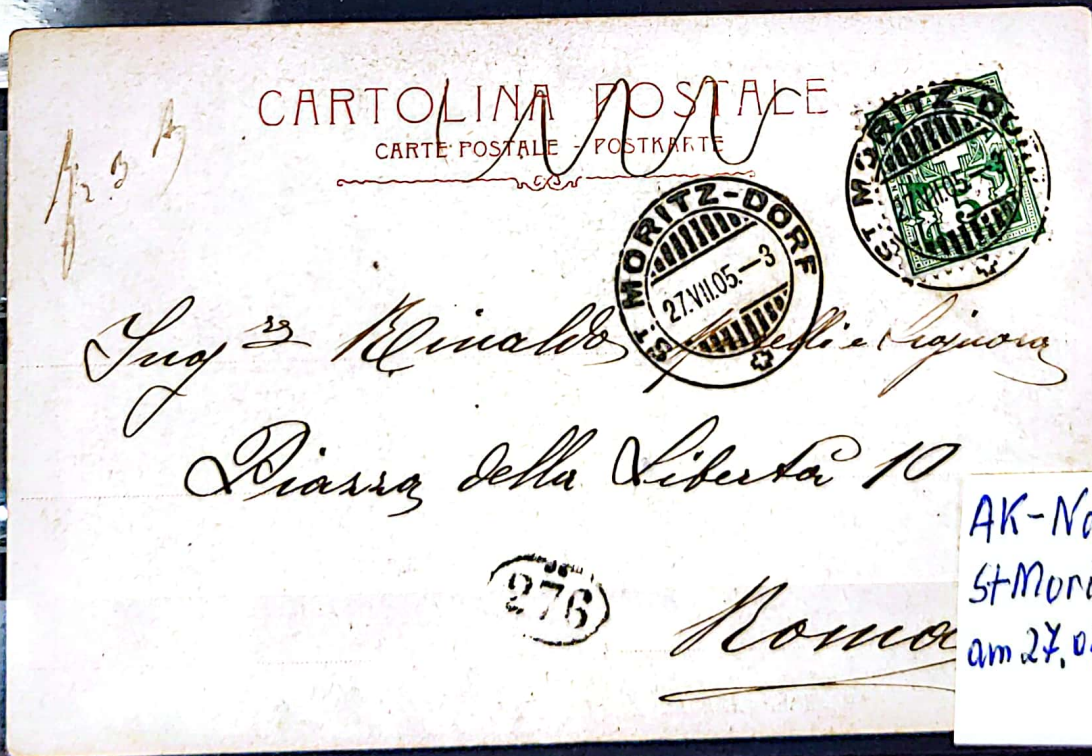 CARTOLINA POSTALE
CARTE POSTALE - POSTKARTE
ST. MORITZ-DORF
27.VII.05.-3
ST. MORITZ-DORF
27.VII.05.-3
Ing re Rinaldo e Signora
Piazza della Libertà 10
276
Roma
AK-
St Mor
am 27.0